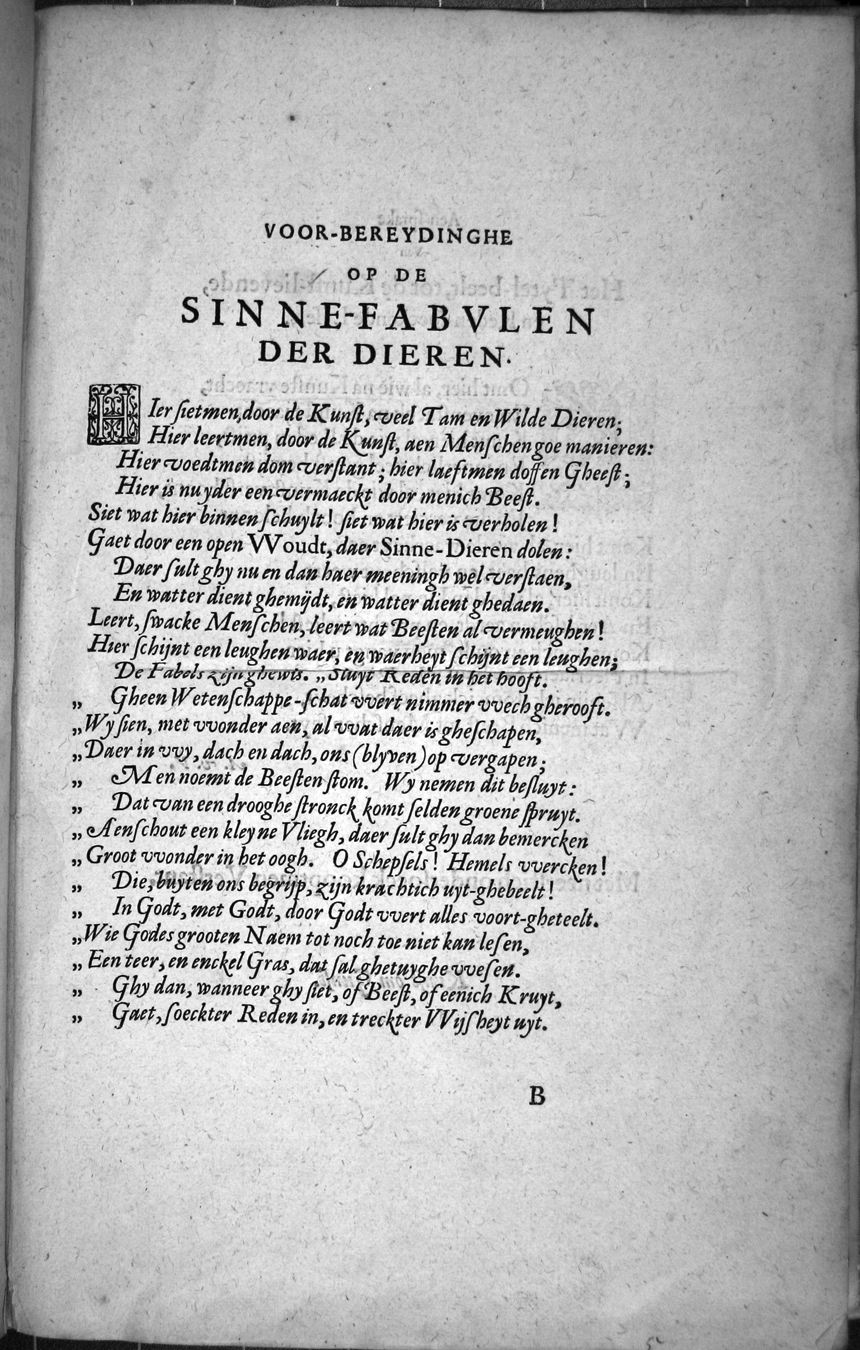 VOOR-BEREYDINGHE
OP DE
SINNE-FABVLEN
DER DIEREN.
HIer ſietmen, door de Kunſt, veel Tam en Wilde Dieren;
Hier leertmen, door de Kunſt, aen Menſchen goe manieren:
Hier voedtmen dom verſtant; hier laeftmen doffen Gheeſt;
Hier is nu yder een vermaeckt door menich Beeſt.
Siet wat hier binnen ſchuylt! ſiet wat hier is verholen!
Gaet door een open VVoudt, daer Sinne-Dieren dolen:
Daer ſult ghy nu en dan haer meeningh wel verſtaen,
En watter dient ghemijdt, en watter dient ghedaen.
Leert, ſwacke Menſchen, leert wat Beeſten al vermeughen!
Hier ſchijnt een leughen waer, en waerheyt ſchijnt een leughen;
De Fabels zijn ghewis. „Sluyt Reden in het hooft.
„ Gheen Wetenſchappe-ſchat vvert nimmer vvech gherooft.
„Wy ſien, met vvonder aen, al vvat daer is gheſchapen,
„Daer in vvy, dach en dach, ons (blyven) op vergapen;
„ Men noemt de Beeſten ſtom. Wy nemen dit beſluyt:
„ Dat van een drooghe ſtronck komt ſelden groene ſpruyt.
„Aenſchout een kleyne Vliegh, daer ſult ghy dan bemercken
„Groot vvonder in het oogh. O Schepſels! Hemels vvercken!
„ Die, buyten ons begrijp, zijn krachtich uyt-ghebeelt!
„ In Godt, met Godt, door Godt vvert alles voort-gheteelt.
„Wie Godes grooten Naem tot noch toe niet kan leſen,
„Een teer, en enckel Gras, dat ſal ghetuyghe vveſen.
„ Ghy dan, wanneer ghy ſiet, of Beeſt, of eenich Kruyt,
„ Gaet, ſoeckter Reden in, en treckter VVijſheyt uyt.
B